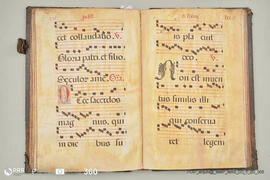 cet collaudatio. V.
Gloria patri, et filio.
Seculor ame.
Ecce sacerdos
mag nus, qui
in die bus su
is pla cuit
Deo. V.
Non est inuen
tus similis illi
qui conserua
ret legem
360